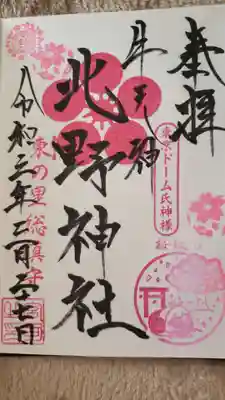 奉拝
牛天神
東京ドーム氏神様
北野神社
東の里総鎮守
令和三年二月二六日